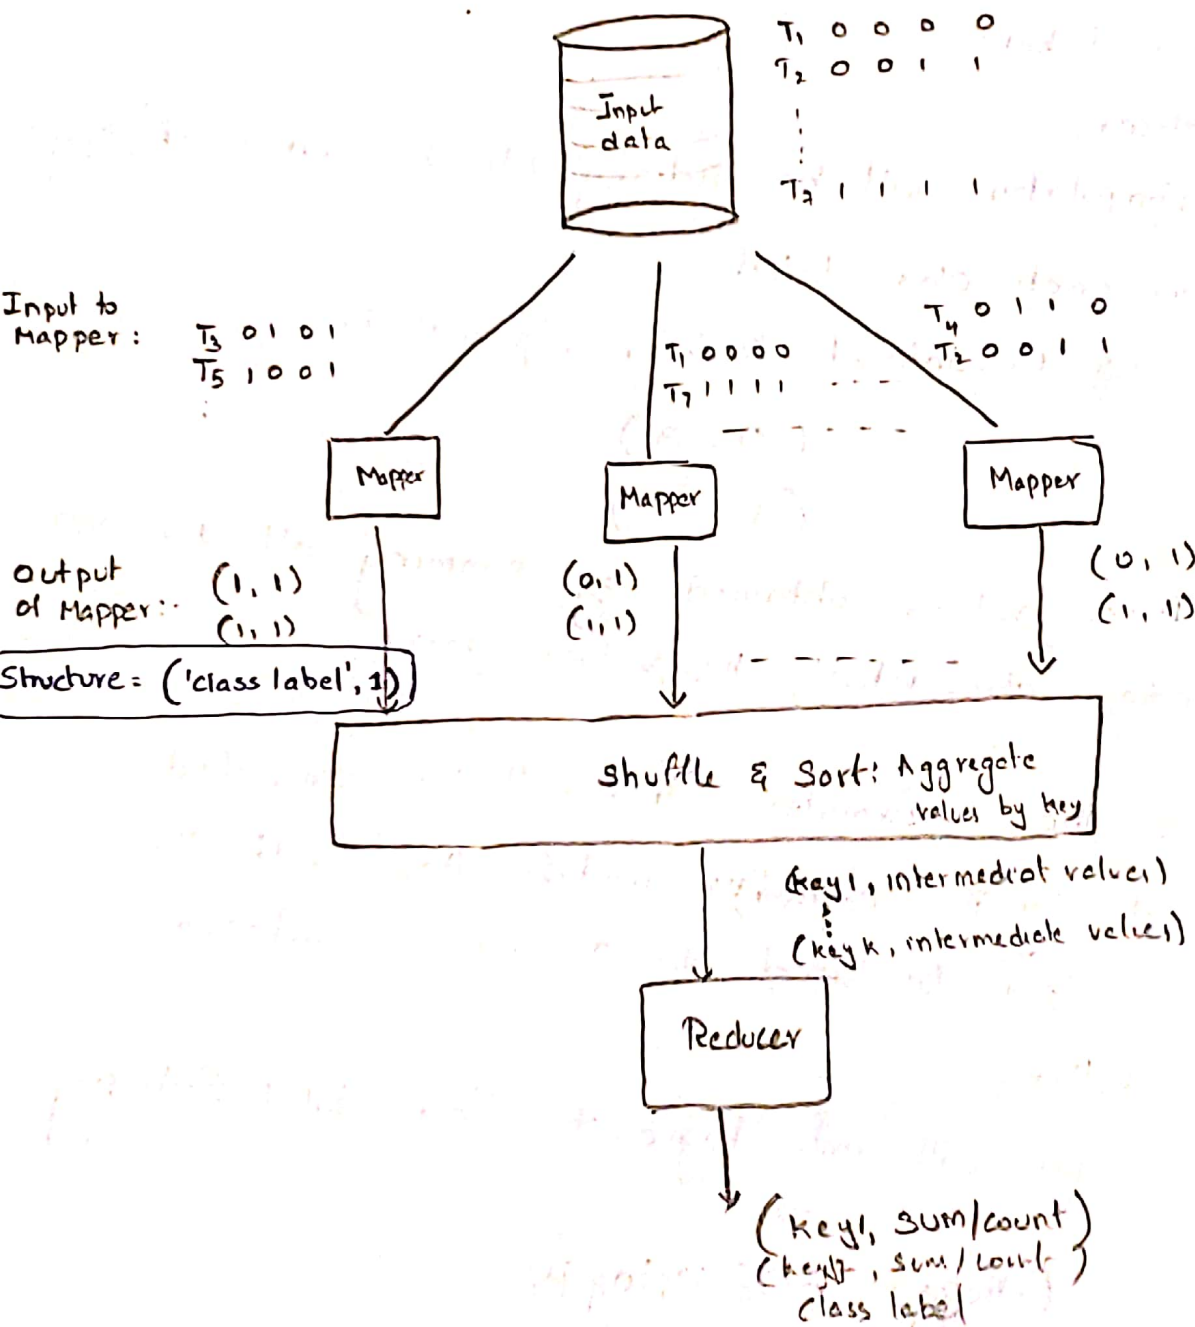 T1 0 0 0 0
T2 0 0 1 1
Input
data
T7 1 1 1 1
Input to
Mapper :
T3 0 1 0 1
T5 1 0 0 1
T1 0 0 0 0
T7 1 1 1 1
T4 0 1 1 0
T2 0 0 1 1
Mapper
Mapper
Mapper
Output
of Mapper:
(1, 1)
(1, 1)
(0, 1)
(1, 1)
(0, 1)
(1, 1)
Structure = ('class label', 1)
Shuffle & Sort: Aggregate
values by key
(key1, intermediat values)
(key k, intermediate values)
Reducer
(key1, sum/count)
sum/count)
class label